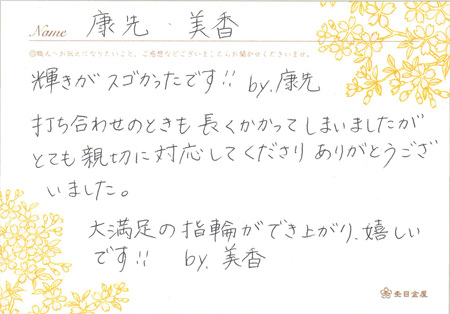 Name 康先・美香
◎職人へお伝えになりたいこと、ご感想などございましたらお聞かせくださいませ。
輝きがスゴかったです!! by.康先
打ち合わせのときも長くかかってしまいましたが
とても親切に対応してくださりありがとうござ
いました。
大満足の指輪ができ上がり、嬉しい
です!! by.美香
杢目金屋